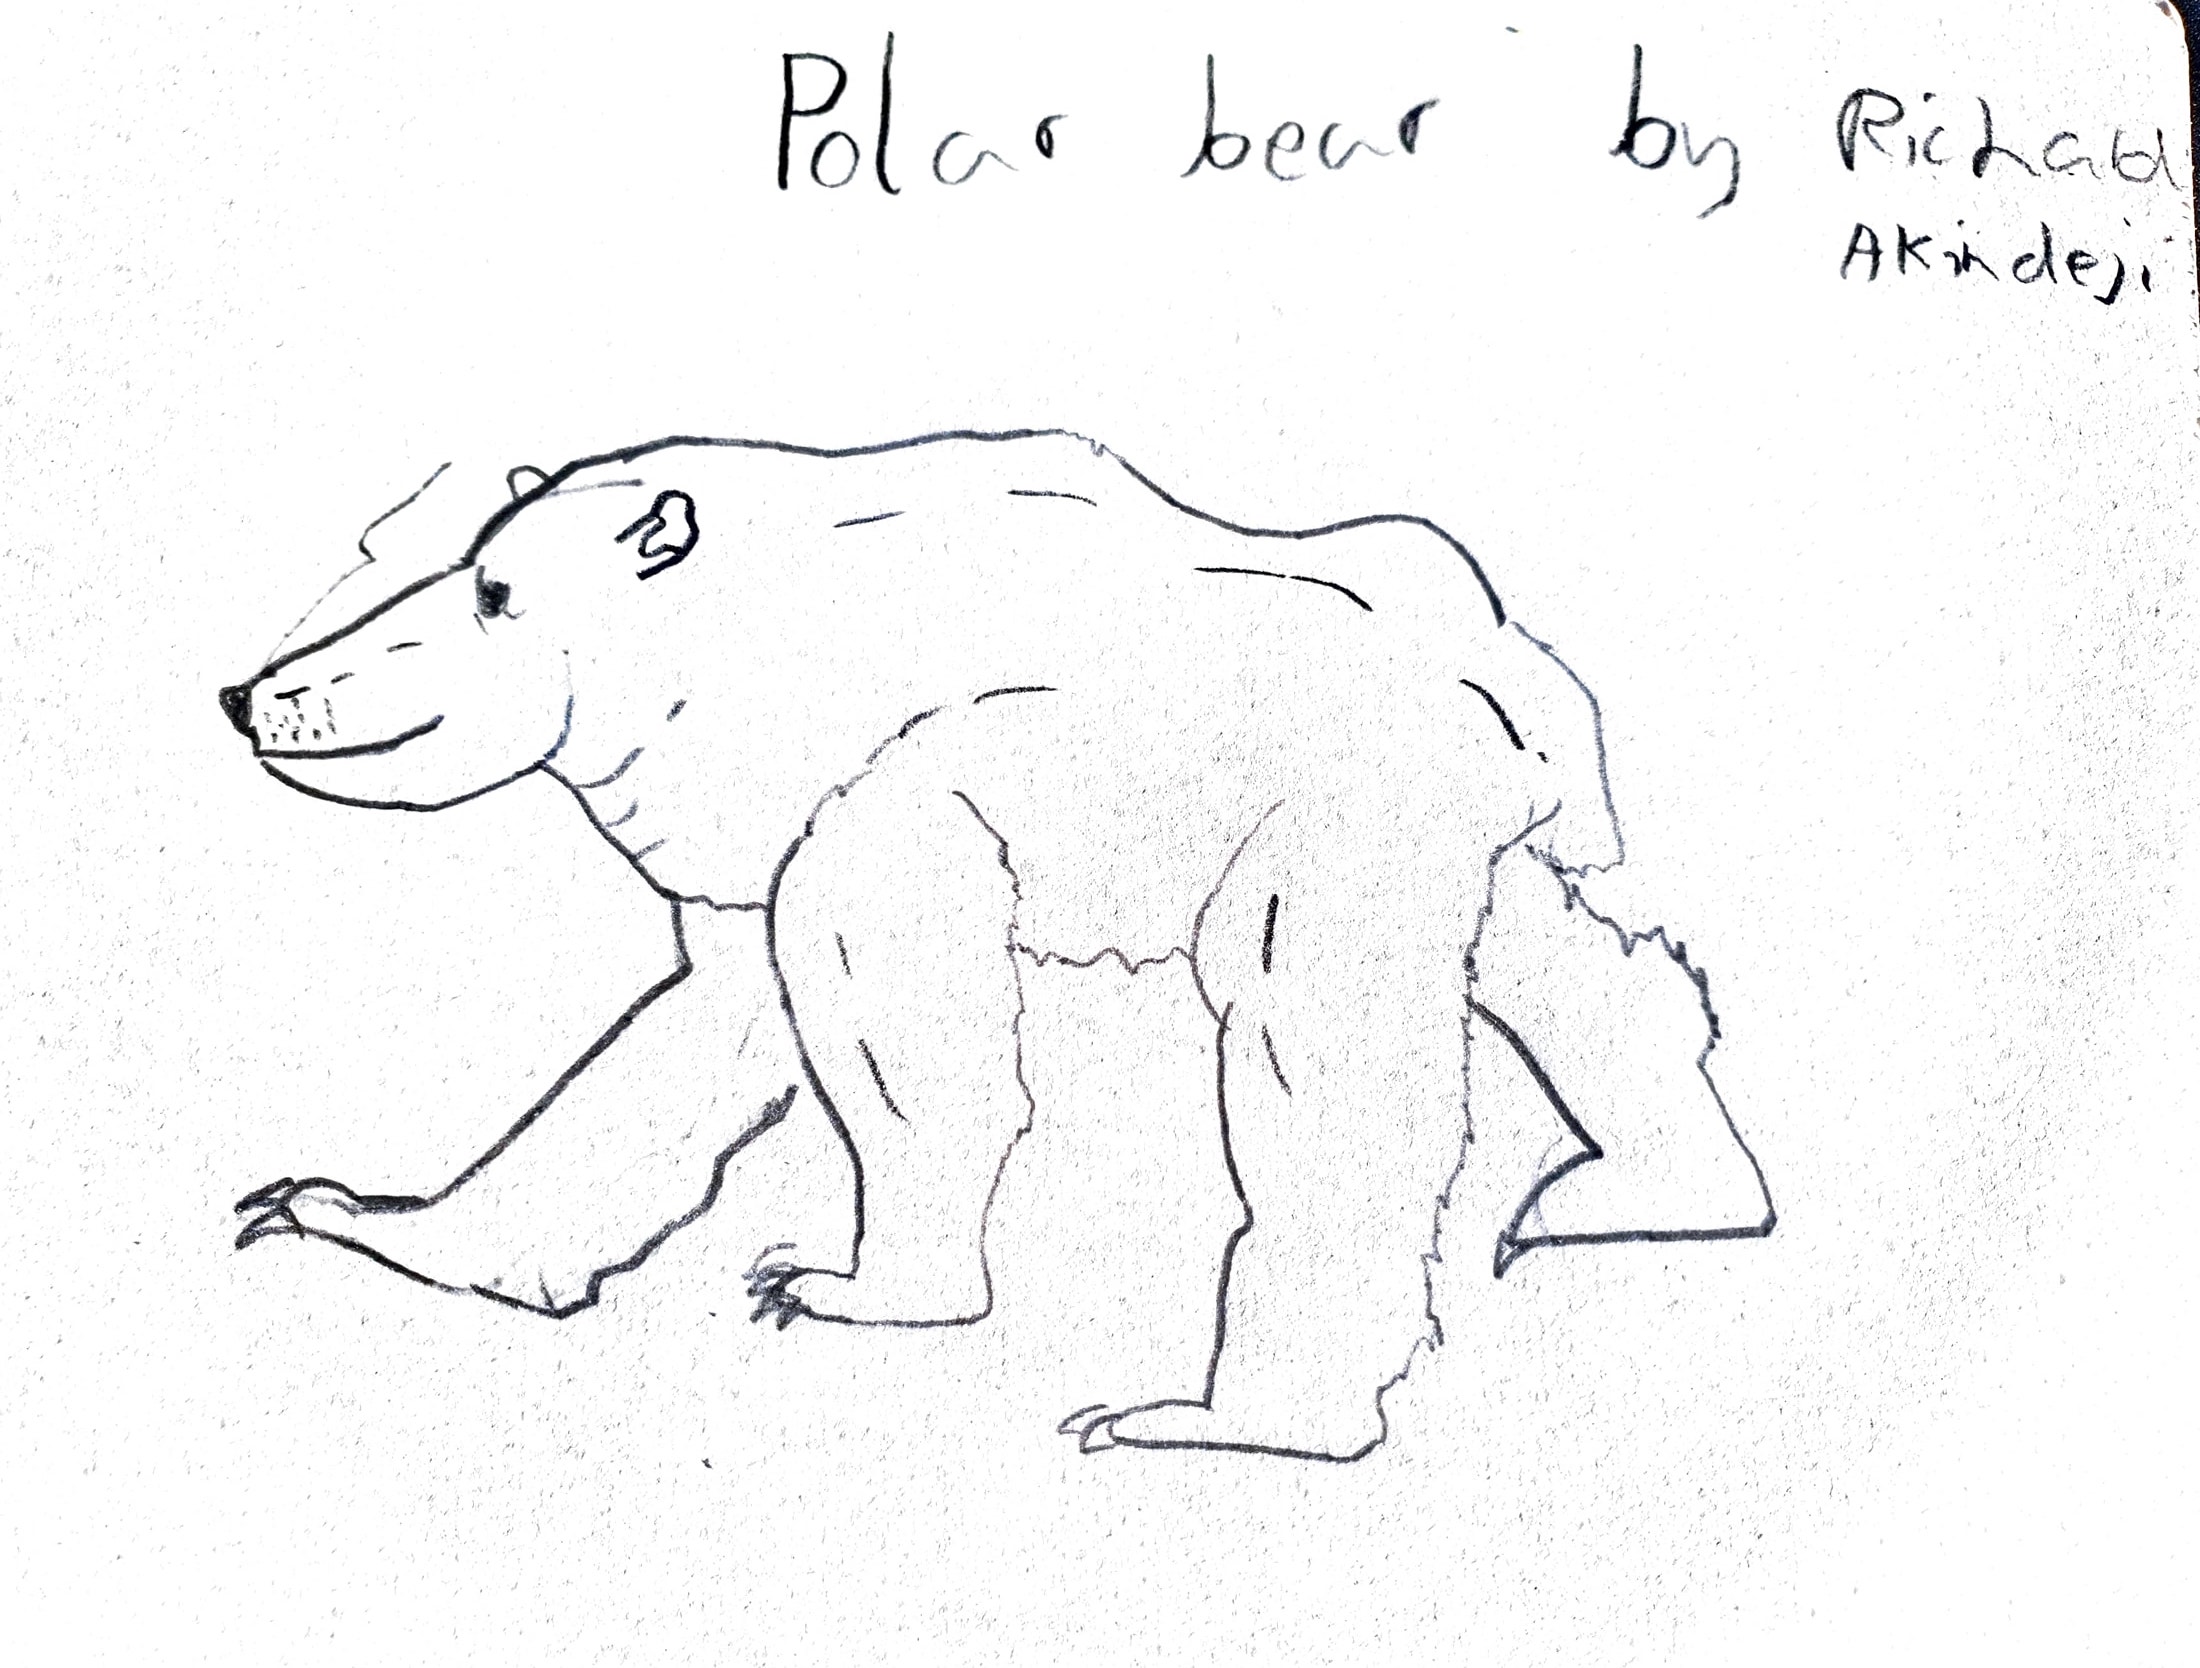 Polar bear by Richard
Akindeji